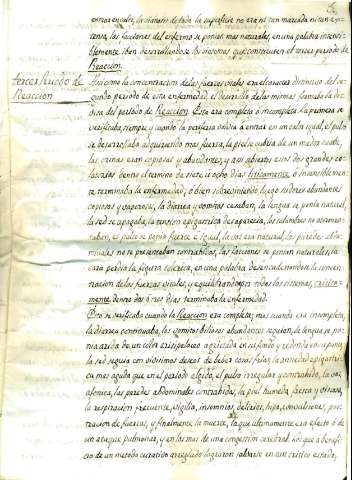 entrar en calor, la cianosis de toda la superficie no era ni tan marcada ni tan espe-
cifica, las facciones del enfermo se ponian mas naturales, en una palabra insensi-
blemente iban desarrollandose las acciones que constituyen el tercer periodo de
Reaccion.
Tercer Periodo de
Reaccion
Asi como la concentracion de las fuerzas vitales era el caracter distintivo del se-
gundo periodo de esta enfermedad, el desarrollo de las mismas formaba la
del periodo de Reaccion. Esta era completa ó incompleta la primera se
verificaba, siempre y cuando la periferia volvia á entrar en calor igual, el pulso
se desarrollaba adquiriendo mas fuerza, la piel se cubria de un madór suave,
las orinas eran copiosas y abundantes, y asi abiertos esos dos grandes co-
latorios dentro el termino de siete ú ocho dias lisicamente ó insensiblemen-
te terminaba la enfermedad; ó bien sobreviniendo luego sudores abundantes
copiosos y vaporosos, la diarrea y vomitos cesaban, la lengua se ponia natural,
la sed se apagaba, la tension epigastrica desaparecia, los calambres no atormen-
taban, el pulso se ponia fuerte é igual, la voz era natural, las paredes abdo-
minales no se presentaban contrahidas, las facciones se ponian naturales, la
cara perdia la figura colerica, en una palabra desencadenandose la concentra-
cion de las fuerzas vitales, y equilibrandose por todos los sistemas, critica-
mente dentro dos ó tres dias terminaba la enfermedad.
Esto se verificaba cuando la Reaccion era completa; mas cuando era incompleta,
la diarrea continuaba, los vomitos biliosos abundantes seguian, la lengua se po-
nia arida de un color erisipelaceo agrietada en su fondo y redonda en su punta,
la sed seguia con vivisimos deseos de beber cosas frias, la ansiedad epigastri-
ca mas aguda que en el periodo algido, el pulso irregular y contrahido, la voz
afonica, las paredes abdominales contrahidas, la piel humeda, fresca y viscosa,
la respiracion frecuente, vigilia, insomnios, delirios, hipo, convulsiones, pos-
tracion de fuerzas, y finalmente la muerte, la que ultimamente era efecto ó de
un ataque pulmonar, y en los mas de una congestion cerebral. Los que á benefi-
cio de un metodo curativo arreglado lograron salvarse en tan critico estado,